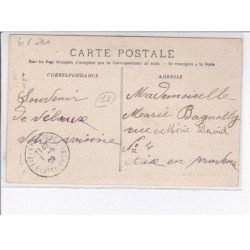 CARTE POSTALE
Tous les Pays étrangers n'acceptent pas la Correspondance au recto. — Se renseigner à la Poste
CORRESPONDANCE
ADRESSE
Souvenir
de Velaux
Votre voisine
13
Mademoiselle
Marie Bagnolly
rue Mérie David
No 4
Aix en provence